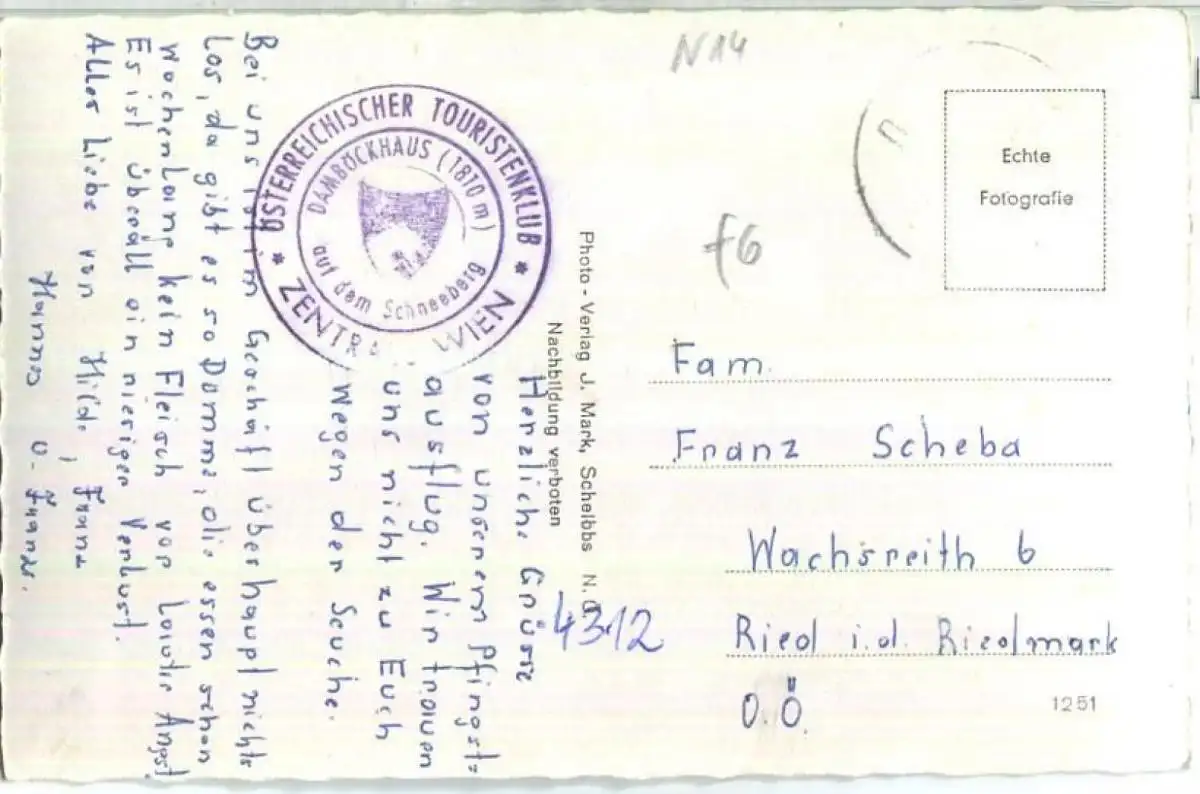 N14
Echte
Fotografie
f6
ÖSTERREICHISCHER TOURISTENKLUB
* ZENTRA WIEN *
DAMBÖCKHAUS (1810 m)
auf dem Schneeberg
Herzliche Grüsse
von unserem Pfingst=
ausflug. Wir trauen
uns nicht zu Euch
wegen der Seuche.
Bei uns im Geschäft überhaupt nichts
los, da gibt es so Dumme, die essen schon
wochenlang kein Fleisch vor lauter Angst
Es ist überall ein riesiger Verlust.
Alles Liebe von Hilde, Franz
Hannes u. Franz.
Photo - Verlag J. Mark, Scheibbs N. Ö.
Nachbildung verboten
Fam.
Franz Scheba
Wachsreith 6
4312 Ried i.d. Riedmark
O.Ö.
1251